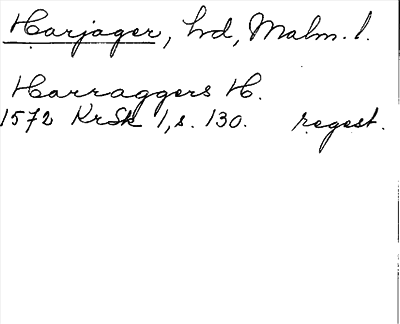 Harjager, hd, Malm. l.
Harraggers H.
1572 KrSk 1, s. 130. regest.